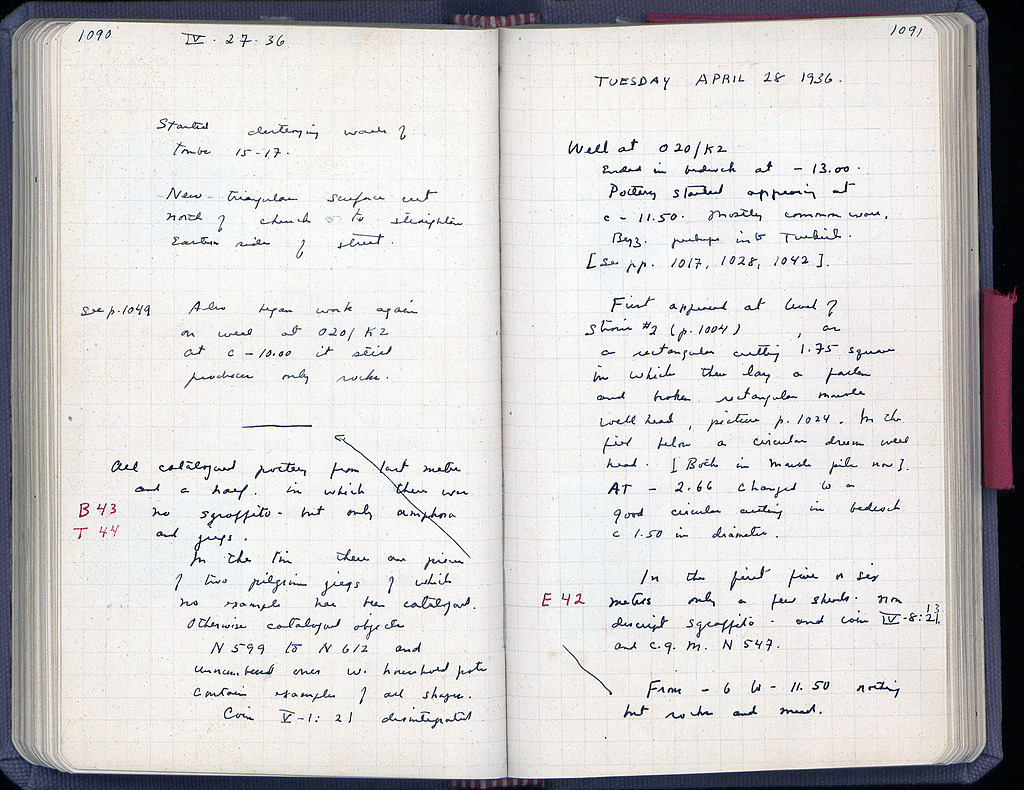 1090
IV · 27 · 36
Started destroying walls of
tombs 15-17.
New triangular surface cut
north of church to straighten
Eastern side of street.
See p. 1049
Also began work again
on well at O20/K2
at c - 10.00 it still
produces only rocks.
All catalogued pottery from last metre
and a half. in which there was
B 43
no sgraffito - but only amphora
T 44
and jugs.
In the tin there are pieces
of two pilgrim jugs of which
no example has been catalogued.
Otherwise catalogued objects
N 599 to N 612 and
unnumbered ones w. household pots
contain examples of all shapes.
Coin V-1: 21 disintegrated
1091
TUESDAY APRIL 28 1936.
Well at O20/K2
Ended in bedrock at - 13.00.
Pottery started appearing at
c - 11.50. Mostly common ware,
Byz. perhaps into Turkish.
[See pp. 1017, 1028, 1042].
First appeared at level of
Strosis #2 (p. 1004) , as
a rectangular cutting 1.75 square
in which there lay a fallen
and broken rectangular marble
well head, picture p. 1024. In the
fill below a circular drum well
head. [Both in marble pile now].
AT - 2.66 changed to a
good circular cutting in bedrock
c 1.50 in diameter.
In the first five or six
E 42
meters only a few sherds. non
descript sgraffito - and coin IV-8: 21,
13
and C.g. M. N 547.
From - 6 to - 11.50 nothing
but rocks and mud.